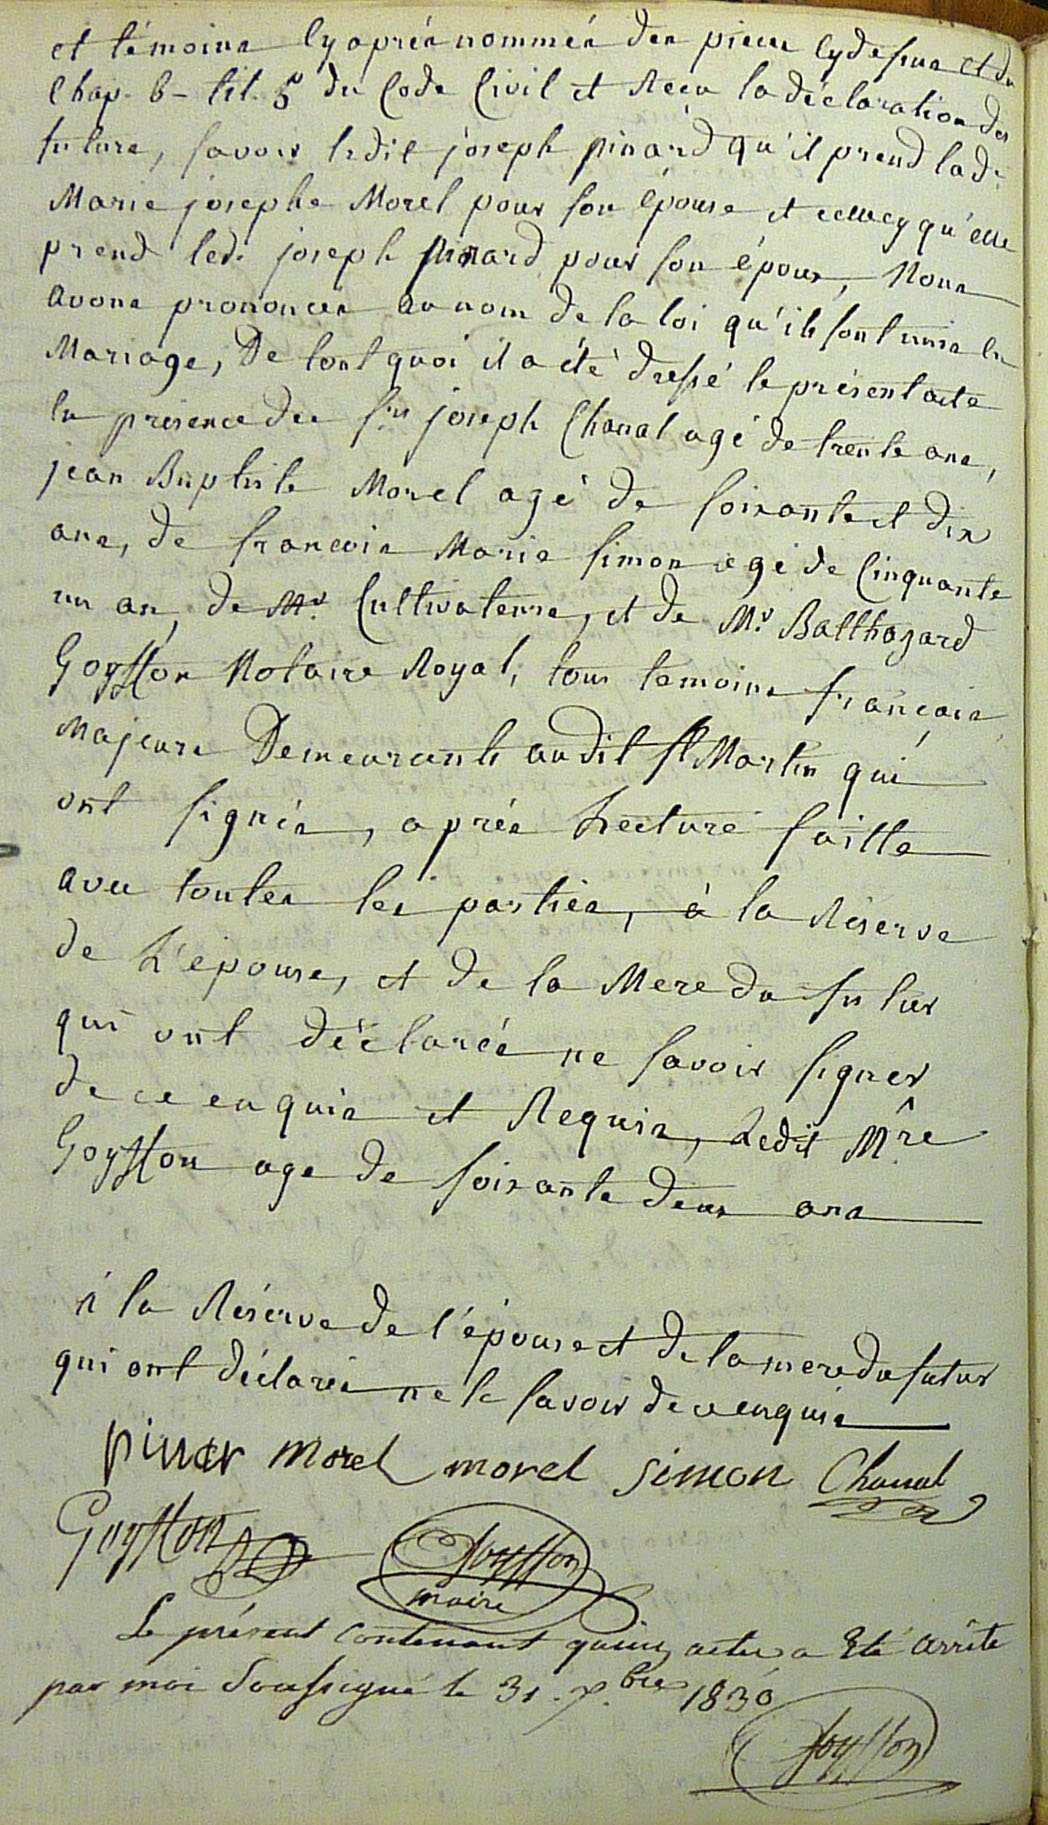 et témoins cy après nommés des pièces cy dessus et du
Chap. 6 - tit. 5 du Code Civil et Recu la déclaration des
futurs, savoir ledit joseph pinard qu'il prend lad.
Marie josephe Morel pour son épouse et cellecy qu'elle
prend led. joseph pinard pour son époux, Nous
avons prononcés au nom de la loi qu'ils sont unis en
Mariage, De tout quoi il a été dressé le présent acte
en présence des srs joseph Chanal agé de trente ans,
jean Baptiste Morel agé de soixante et dix
ans, de francois Marie simon agé de Cinquante
un an, de Mr. Cultivateurs, et de Mr. Balthazard
Goyffon Notaire Royal, tous temoins francais
Majeurs Demeurants audit st Martin qui
ont signés, après Lecture faitte
avec toutes les parties, à la Réserve
de L'epouse, et de la Mere du futur
qui ont déclarés ne savoir signer
de ce enquis et Requis, Ledit Mre
Goyffon age de soixante deux ans
à la Réserve de l'épouse et de la mere du futur
qui ont déclarés ne le savoir de ce enquis
pinar morel morel simon Chanal
Goyffon Goyffon
maire
Le présent contenant quinz actes a Eté arrêté
par moi Soussigné le 31. xbre 1830
Goyffon